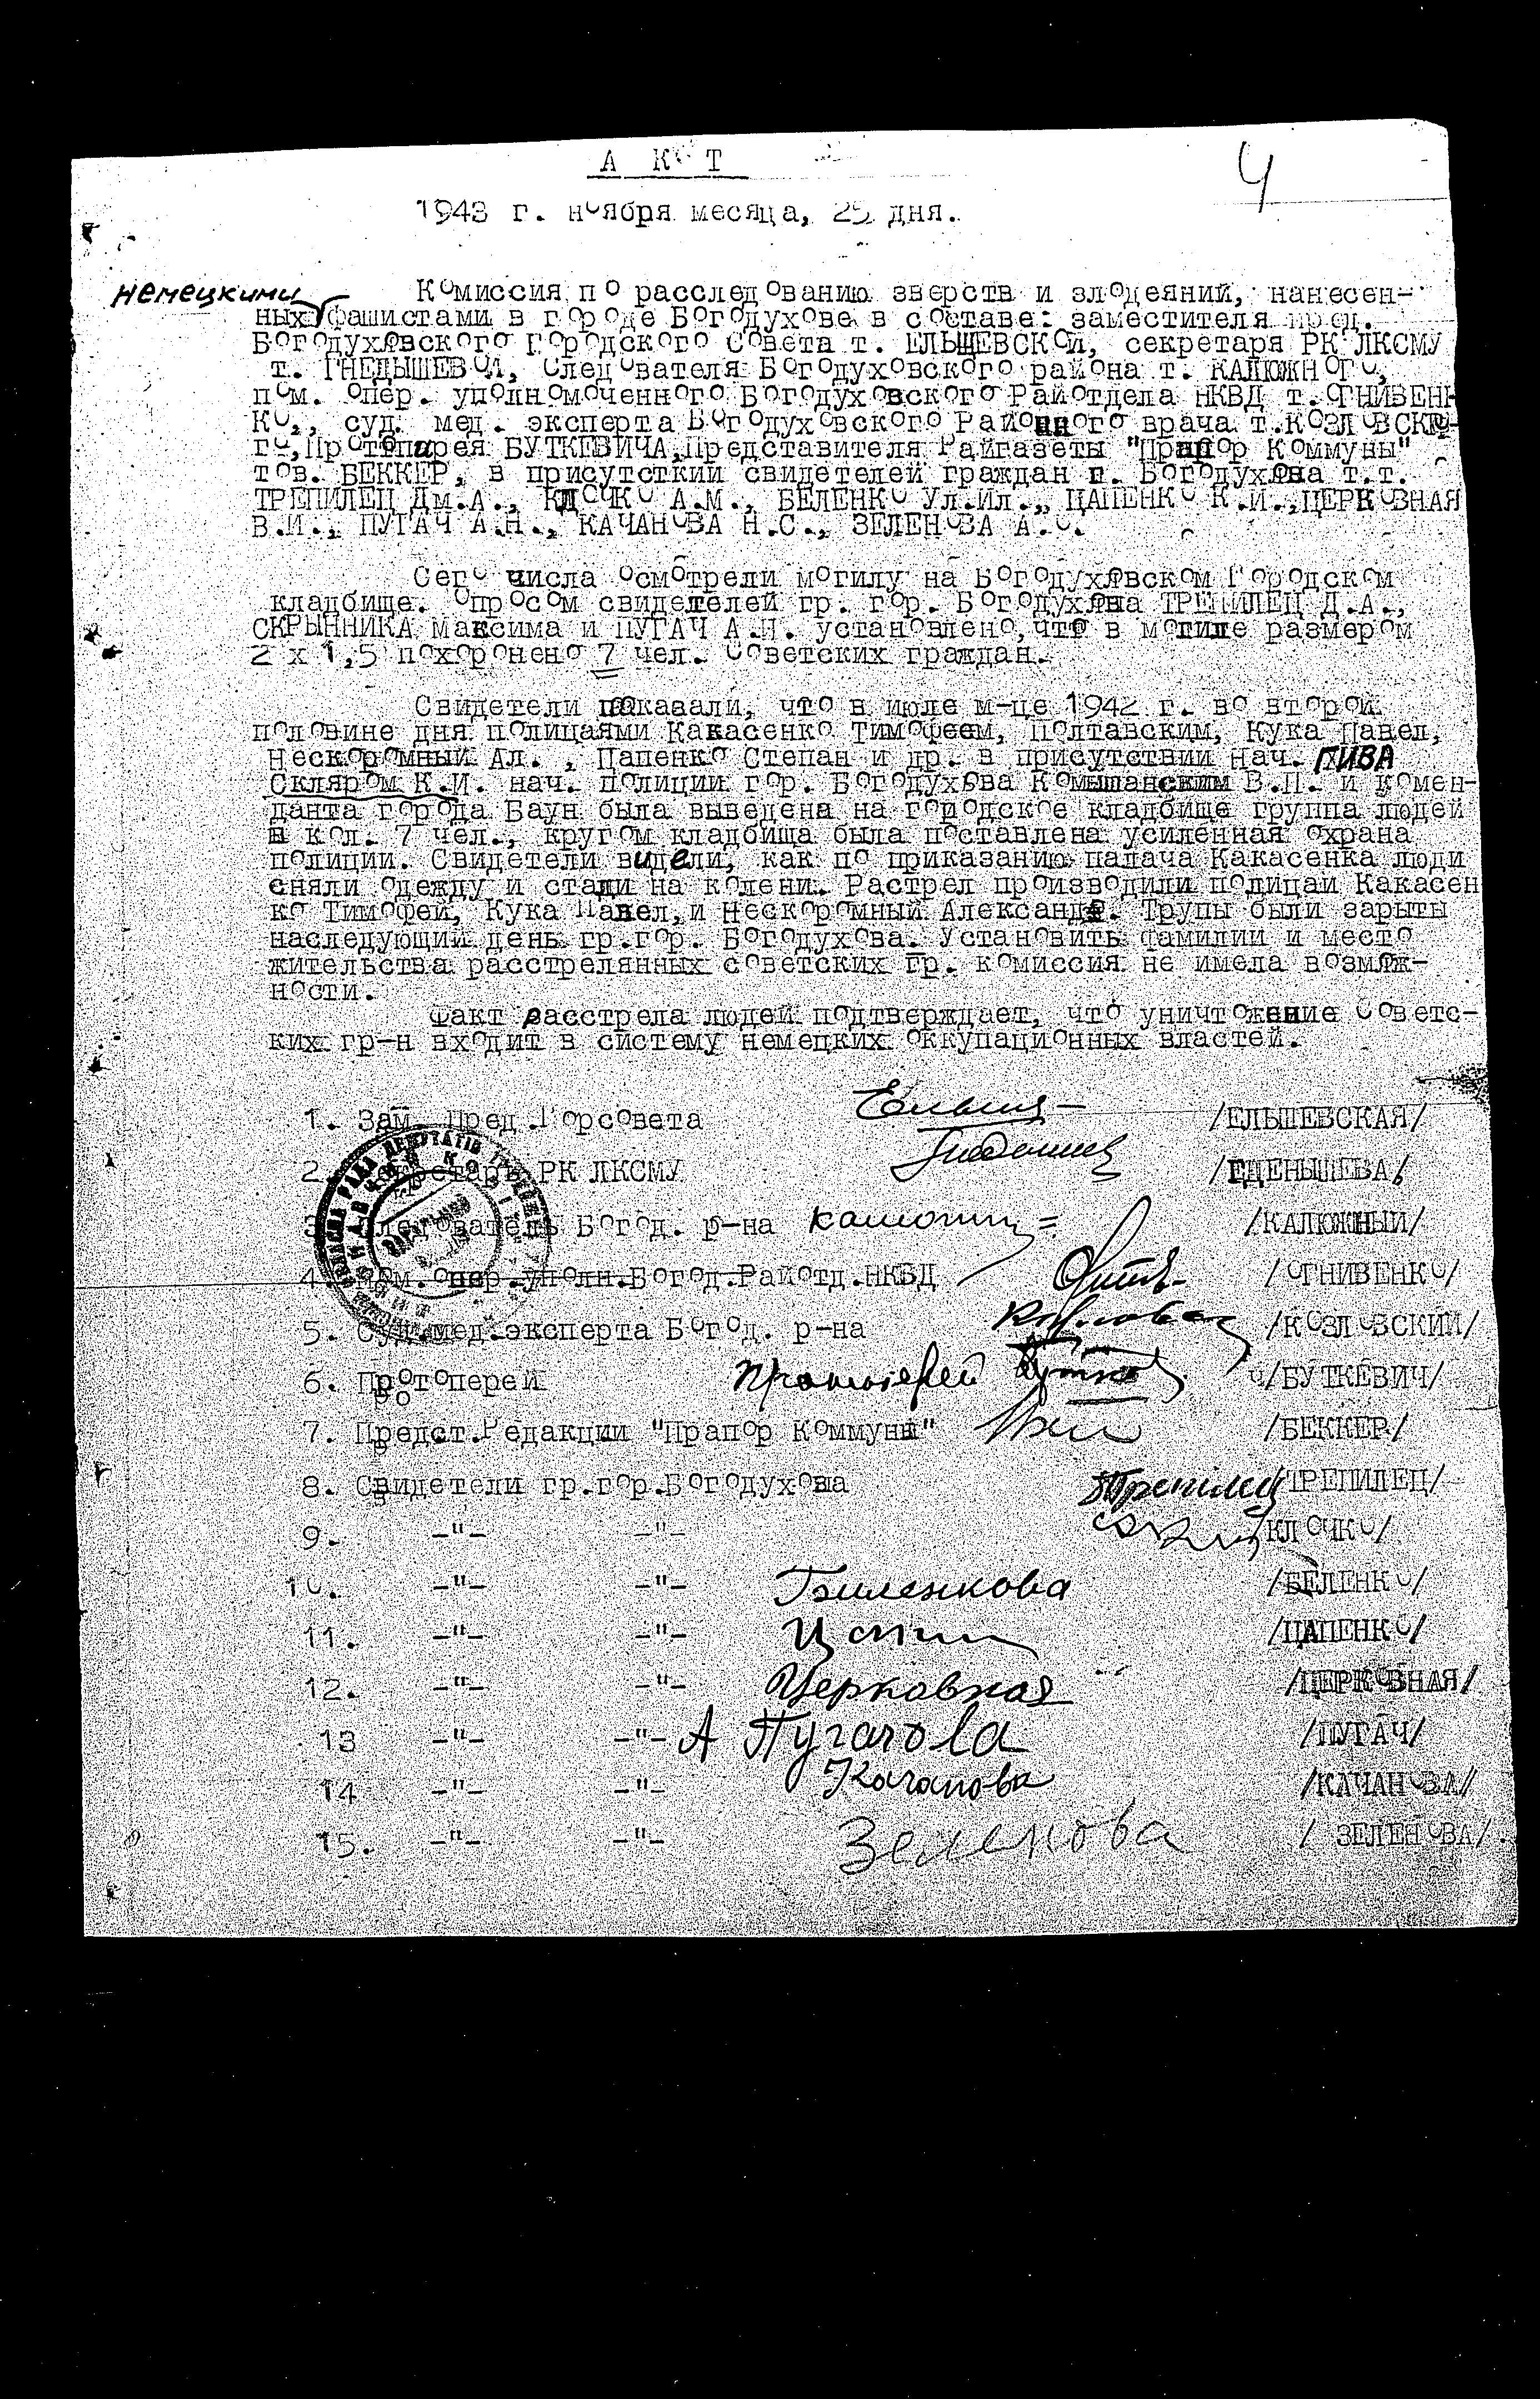 А К Т
4
1943 г. ноября месяца, 25 дня.
немецкими
Комиссия по расследованию зверств и злодеяний, нанесен-
ных фашистами в городе Богодухове в составе: заместителя пред.
Богодуховского Городского Совета т. ЕЛЬЩЕВСКОЙ, секретаря РК ЛКСМУ
т. ГНЕДЫШЕВОЙ, Следователя Богодуховского района т. КАЛЮЖНОГО,
пом. опер. уполномоченного Богодуховского Райотдела НКВД т. ОГНИВЕН-
КО, суд. мед. эксперта Богодуховского Районного врача т.КОЗЛОВСКО-
го, Протопирея БУТКЕВИЧА, Представителя Райгазеты "Прапор Коммуны"
тов. БЕККЕР, в присутсткии свидетелей граждан г. Богодухова т.т.
ТРЕПИЛЕЦ Дм.А., КЛОЧКО А.М., БЕЛЕНКО Ул.Ил., ЦАПЕНКО К.И., ЦЕРКОВНАЯ
В.И., ПУГАЧ А.Н., КАЧАНОВА Н.С., ЗЕЛЕНОВА А.С.
Сего числа осмотрели могилу на Богодуховском Городском
кладбище. Опросом свидетелей гр. гор. Богодухова ТРЕПИЛЕЦ Д.А.,
СКРЫННИКА Максима и ПУГАЧ А.Н. установлено, что в могиле размером
2 х 1,5 похоронено 7 чел. Советских граждан.
Свидетели показали, что в июле м-це 1942 г. во второй
половине дня полицаями Какасенко Тимофеем, Полтавским, Кука Павел,
Нескоромный Ал., Цапенко Степан и др. в присутствии Нач. ПИВА
Скляром К.И. нач. полиции гор. Богодухова Комышанским В.П. и комен-
данта города Баун была выведена на городское кладбище группа людей
в кол. 7 чел., кругом кладбища была поставлена усиленная охрана
полиции. Свидетели видели, как по приказанию палача Какасенка люди
сняли одежду и стали на колени. Растрел производили полицаи Какасен
ко Тимофей, Кука Павел, и Нескоромный Александр. Трупы были зарыты
наследующий день гр.гор. Богодухова. Установить фамилии и место
жительства расстрелянных советских гр. комиссия не имела возмож-
ности.
Факт расстрела людей подтверждает, что уничтожение Советс-
ких гр-н входит в систему немецких оккупационных властей.
1. Зам. Пред. Горсовета /ЕЛЬШЕВСКАЯ/
2. Секретарь РК ЛКСМУ /ГДЕНЫШЕВА/
3. Следователь Богод. р-на /КАЛЮЖНЫЙ/
4. Пом. опер. уполн. Богод. Райотд. НКВД /ОГНИВЕНКО/
5. Суд.мед.эксперта Богод. р-на /КОЗЛОВСКИЙ/
6. Протоперей Протоиерей /БУТКЕВИЧ/
7. Предст.Редакции "Прапор Коммуны" /БЕККЕР/
8. Свидетели гр.гор.Богодухова Трепилец /ТРЕПИЛЕЦ/
9. -"- -"- /КЛОЧКО/
10. -"- -"- Биленкова /БЕЛЕНКО/
11. -"- -"- /ЦАПЕНКО/
12. -"- -"- Церковная /ЦЕРКОВНАЯ/
13 -"- -"- А Пугачова /ПУГАЧ/
14 -"- -"- Качанова /КАЧАНОВА/
15. -"- -"- Зеленова / ЗЕЛЕНОВА/.